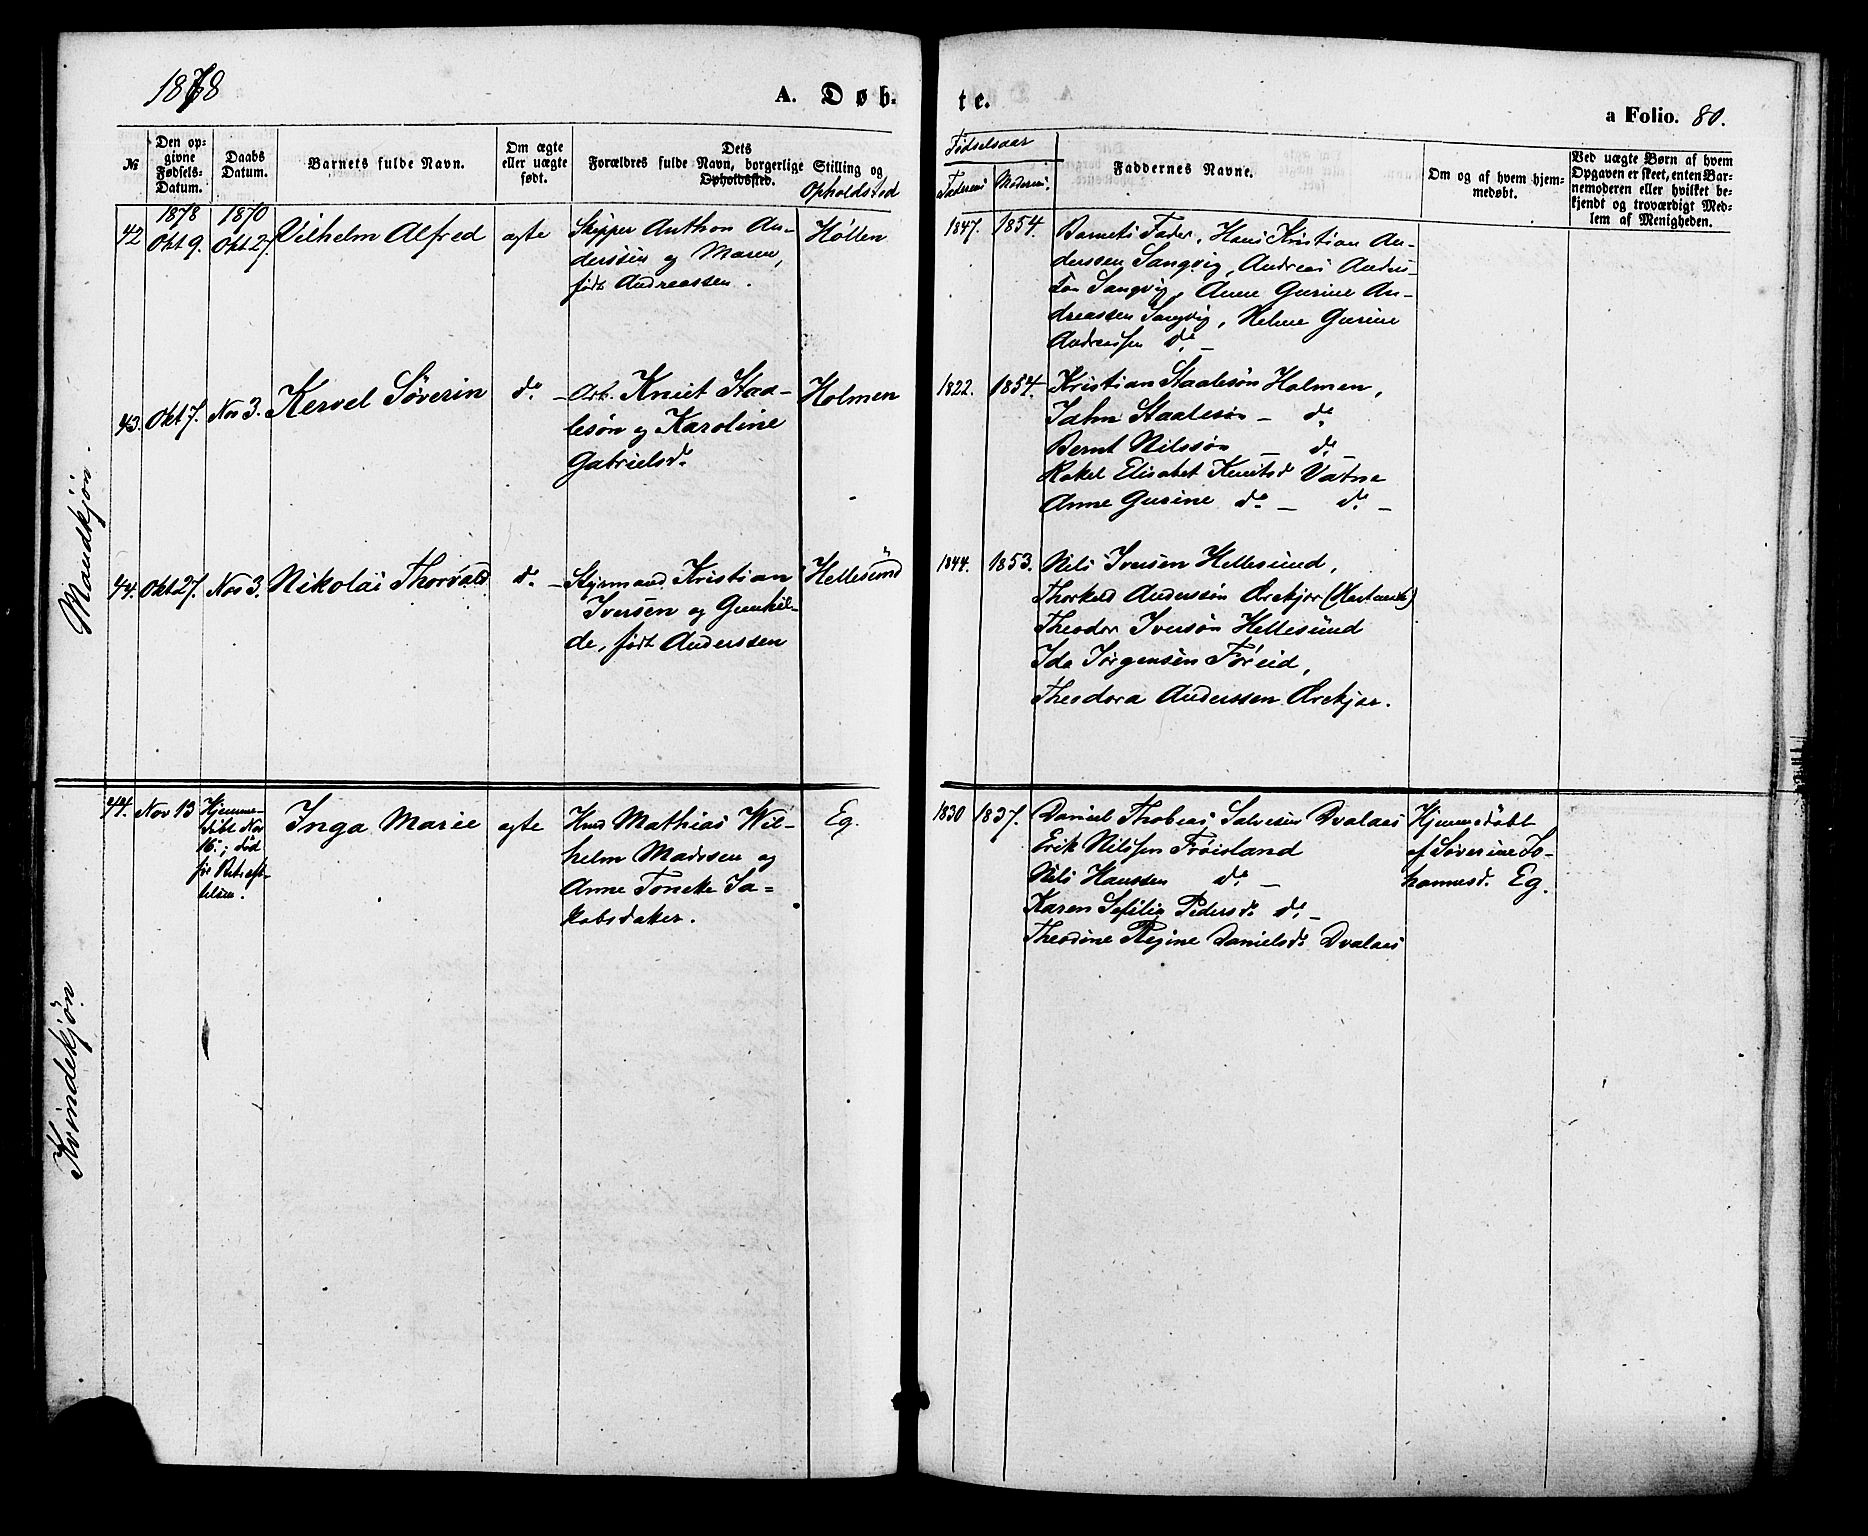 1878
A. Døb-
te.
a Folio. 80.
№
Den op-
givne
Fødsels-
Datum.
Daabs
Datum.
Barnets fulde Navn.
Om ægte
eller uægte
født.
Dets
Forældres fulde Navn, borgerlige Stilling og
Opholdssted.
Opholdssted
Fødselsaar
Faderens
Moderens.
Faddernes Navne.
Om og af hvem hjem-
medøbt.
Ved uægte Børn af hvem
Opgaven er skeet, enten Bar-
nemoderen eller hvilket be-
kjendt og troværdigt Med-
lem af Menigheden.
Mandkjøn.
42
1878
Okt 9.
1870
Okt. 27.
Vilhelm Alfred
ægte
Skipper Anthon An-
derssen og Maren,
født Andreassen.
Høllen
1847.
1854.
Barnets Fader, Hans Kristian An-
derssen Langvig, Andreas Anders-
søn Langvig, Anne Gurine An-
dreassen Langvig, Helene Gurine
Andreassen do –
43.
Okt 7.
Nov 3.
Kervel Søverin
do –
Arb. Knut Staa-
lesøn og Karoline
Gabrielsd.
Holmen
1822.
1854.
Kristian Staalesøn Holmen,
Jahn Staalesøn – do
Bernt Nilssøn – do
Rakel Elisabet Knutsd Vatne
Anne Gurine do – do –
44.
Okt 27.
Nov 3.
Nikolai Thorvald
do –
Styrmand Kristian
Iversen og Gunhil-
de, født Anderssen
Hellesund
1844.
1853.
Nils Iversen Hellesund,
Thorkeld Anderssøn Ørekjær
Theodor Iversøn Hellesund
Ida Jørgensen
Theodora Anderssen Ørekjær.
Kvindekjøn
44.
Nov 13
Hjemme-
døbt Nov
16.; død
før
Inga Marie
ægte
Hmd Mathias Wil-
helm Madssen og
Anne Toneke Ja-
kobsdater.
Eg.
1830
1837.
Daniel Thobias Salvesen Dvalaas
Erik Nilssen Frøisland
Nils Hanssen do –
Karen Sefilie Pedersd. do –
Theodine Regine Danielsd. Dvalaas
Hjemmedøbt
af Søverine Jo-
hannesd. Eg.